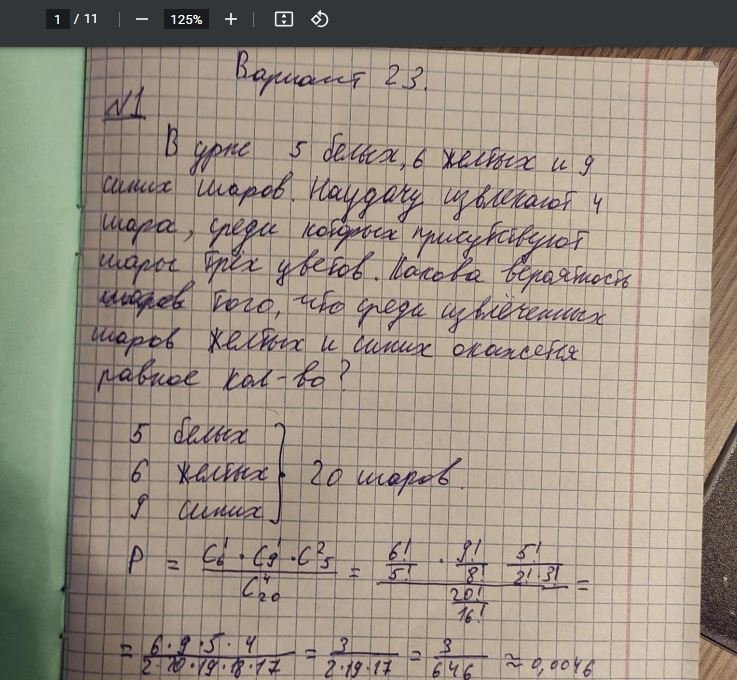 1 / 11 125%
Вариант 23.
№1
В урне 5 белых, 6 желтых и 9
синих шаров. Наудачу извлекают 4
шара, среди которых присутствуют
шары трёх цветов. Какова вероятность
шаров того, что среди извлечённых
шаров желтых и синих окажется
равное кол-во?
5 белых
6 желтых } 20 шаров.
9 синих
P = (C₆¹ · C₉¹ · C₅²) / C₂₀⁴ = (6!/5! · 9!/8! · 5!/(2!·3!)) / (20!/16!) =
= (6·9·5·4) / (2·20·19·18·17) = 3 / (2·19·17) = 3/646 ≈ 0,0046